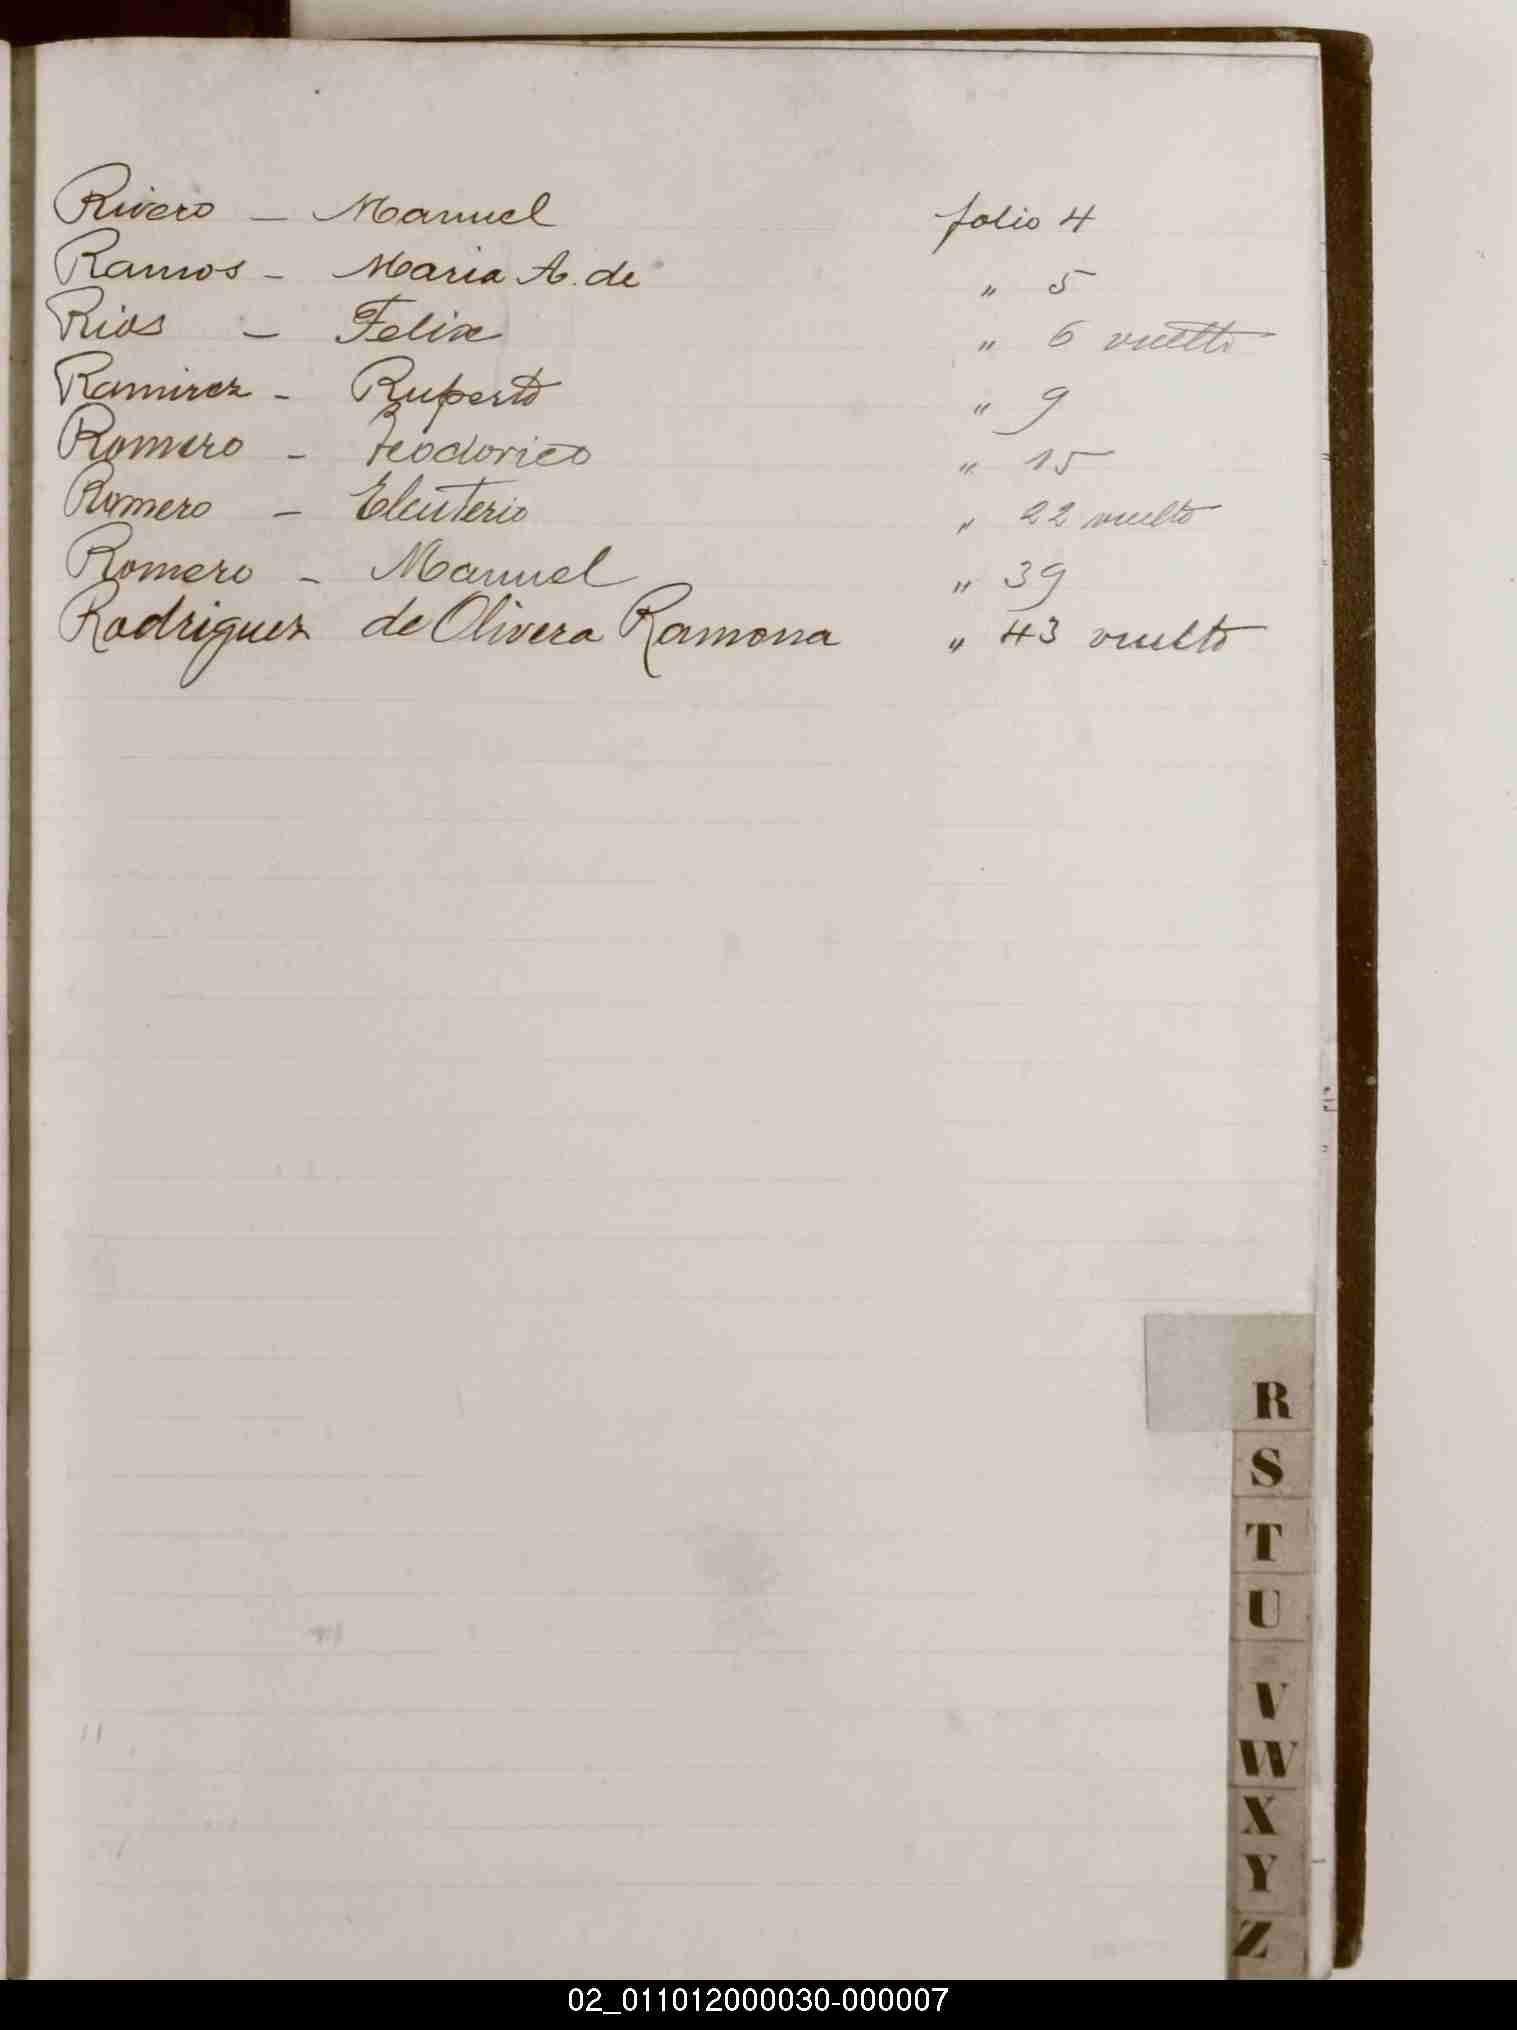 Rivero - Manuel folio 4
Ramos - Maria A. de " 5
Rios - Felix " 6 vuelto
Ramirez - Ruperto " 9
Romero - Teodorico " 15
Romero - Eleuterio " 22 vuelto
Romero - Manuel " 39
Rodriguez de Olivera Ramona " 43 vuelto
R
S
T
U
V
W
X
Y
Z
02_011012000030-000007